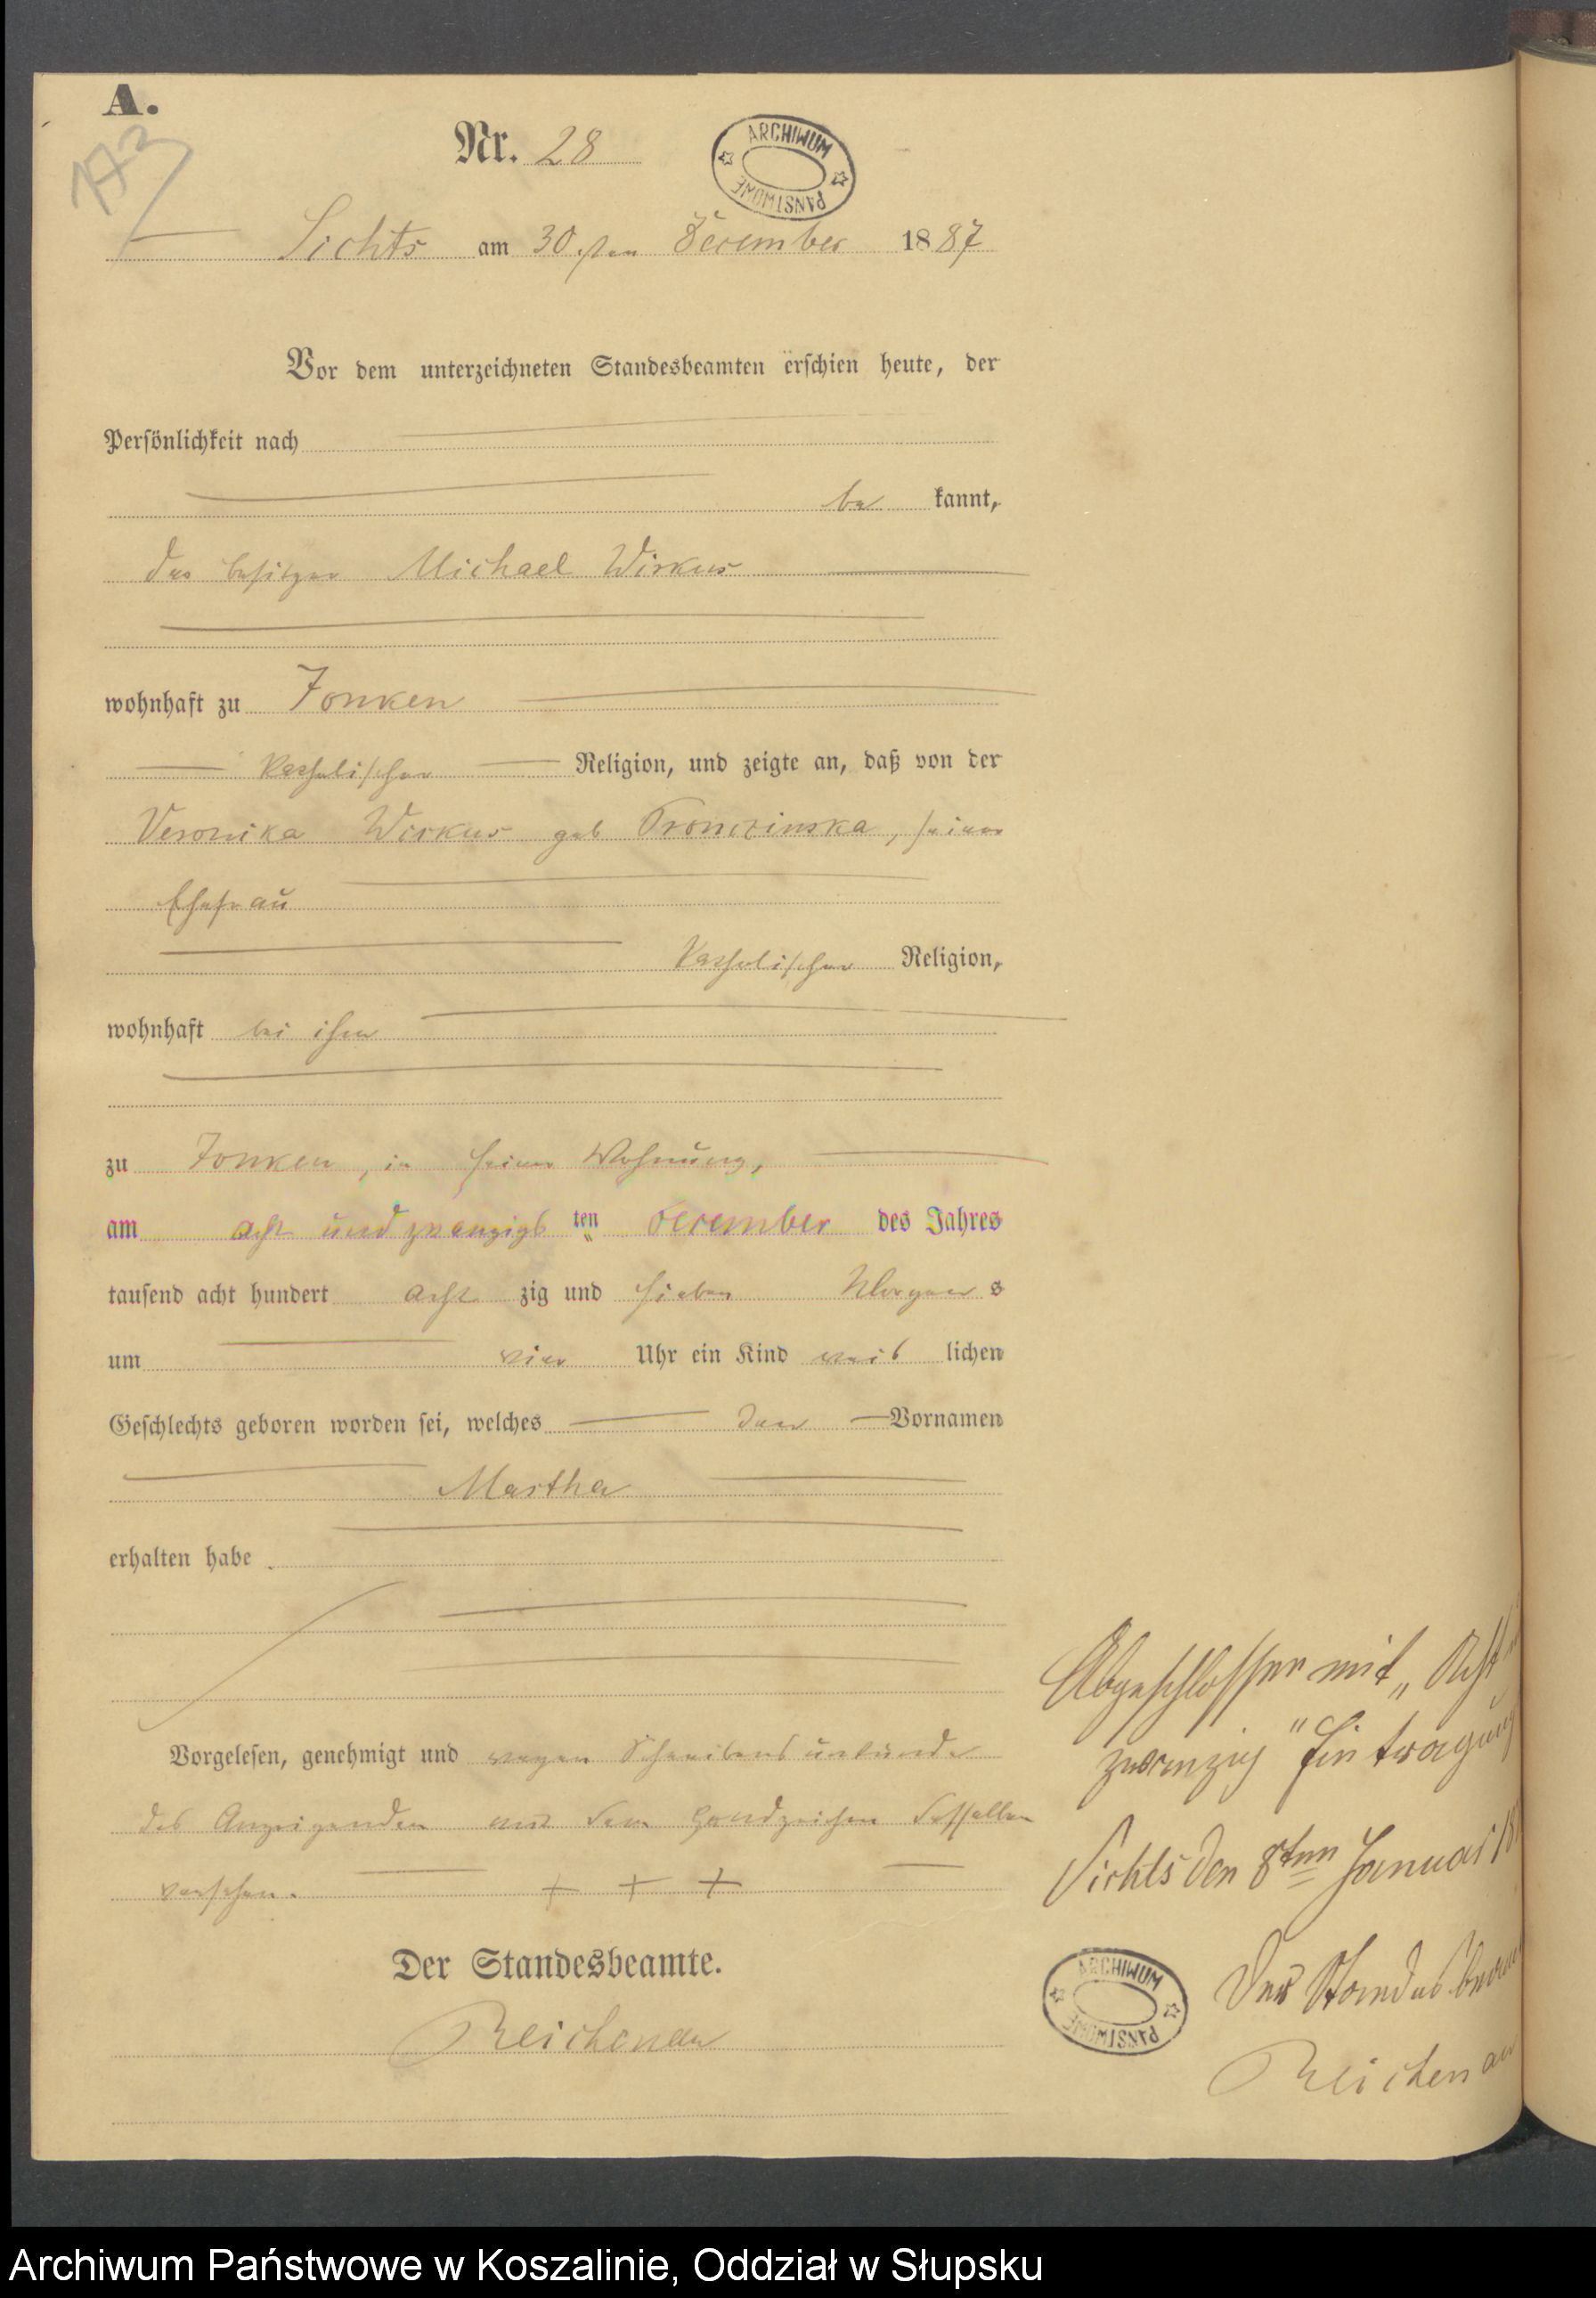 A.
173
Nr. 28
ARCHIWUM PAŃSTWOWE
Lichts am 30.sten December 1887
Vor dem unterzeichneten Standesbeamten erschien heute, der
Persönlichkeit nach
be kannt,
der besitzer Michael Wirkus
wohnhaft zu Jonken
katholischer Religion, und zeigte an, daß von der
Veronika Wirkus geb Pronczinska, seiner
Ehefrau
katholischer Religion,
wohnhaft bei ihm
zu Jonken, in seiner Wohnung,
am acht und zwanzigs ten December des Jahres
tausend acht hundert acht zig und sieben Morgen s
um vier Uhr ein Kind weib lichen
Geschlechts geboren worden sei, welches den Vornamen
Martha
erhalten habe.
Vorgelesen, genehmigt und wegen Schreibensunkunde
des Anzeigenden mit dem Handzeichen desselben
versehen. + + +
Der Standesbeamte.
Reichenau
Abgeschlossen mit „Acht
zwanzig" Eintragung
Lichts den 8ten Januar 18
Der Standesbeam
Reichenau
ARCHIWUM PAŃSTWOWE
Archiwum Państwowe w Koszalinie, Oddział w Słupsku